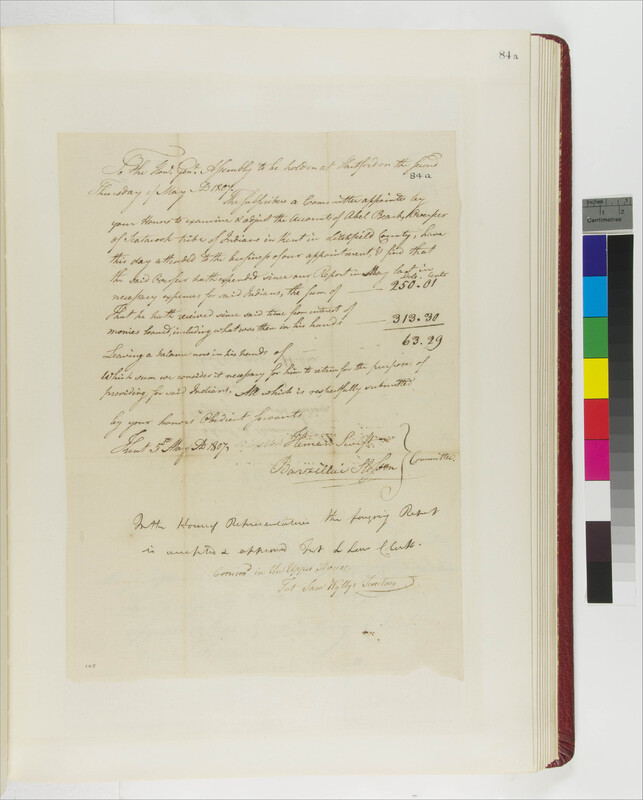 84a
To the Honl. Genl. Assembly to be holden at Hartford on the second
84a
Thursday of May AD 1807
The subscribers a Committee appointed by
your Honors to examine & adjust the Accounts of Abel Beach, Overseer
of Scatacook tribe of Indians in Kent in Litchfield County, have
this day attended to the business of our appointment, & find that
the said Overseer hath expended since our Report in May last in
Dols. Cents
necessary expenses for said Indians, the sum of — 250.01
That he hath received since said time from interest of
monies loaned, including what was then in his hands — 313.30
Leaving a balance now in his hands of 63.29
Which sum we consider it necessary for him to retain for the purpose of
providing for said Indians. All which is respectfully submitted
by your honors Obedient Servants
Kent 5th May AD 1807
Heman Swift
Barzillai Slosson } Committee
In the House of Representatives the foregoing Report
is accepted & approved Test Clerk
Concurd in the Upper House
Test Sam Wyllys Secretary
Inches
1
2
Centimetres